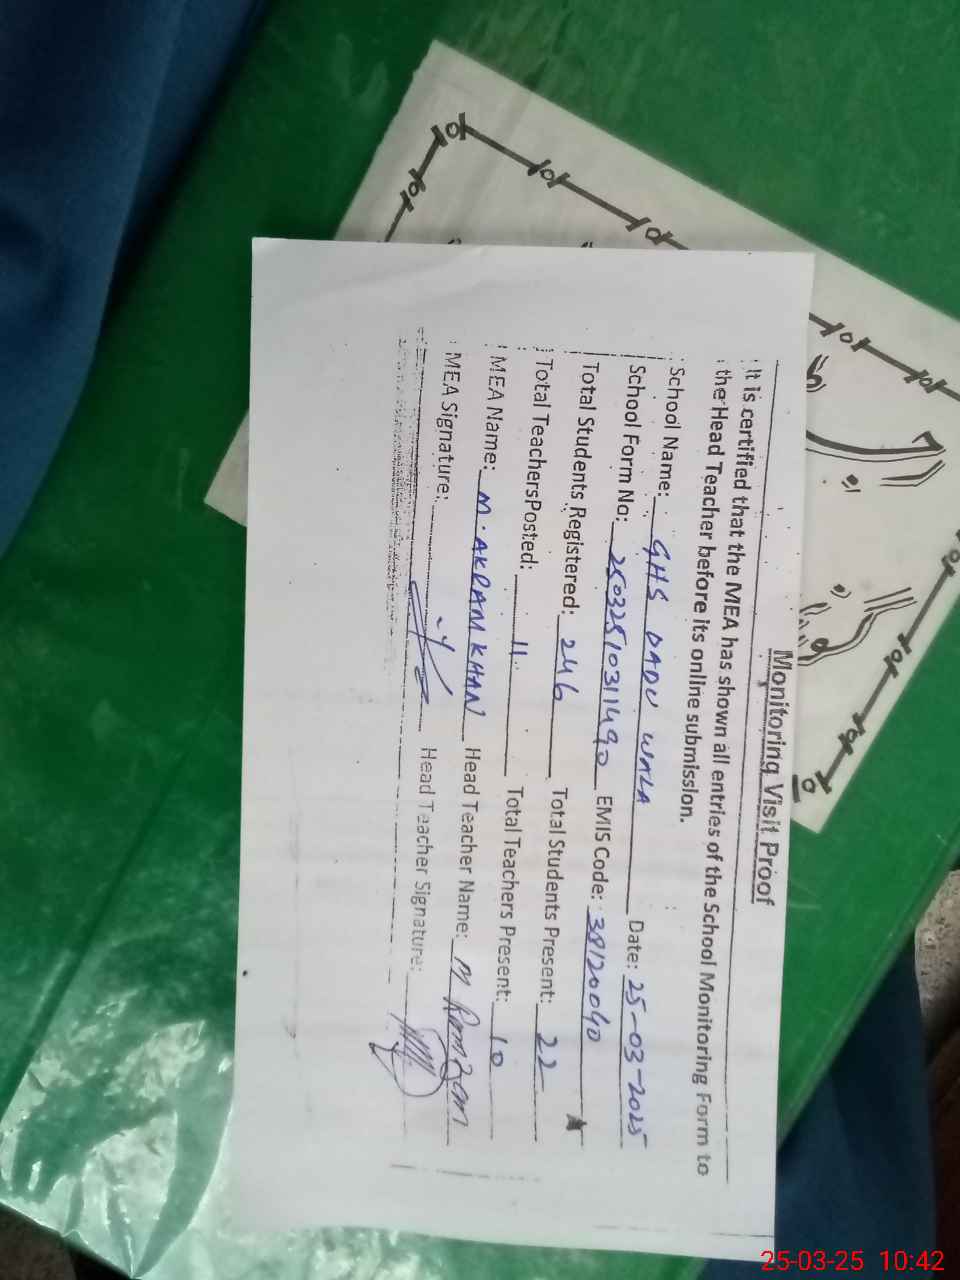 Monitoring Visit Proof
It is certified that the MEA has shown all entries of the School Monitoring Form to
the Head Teacher before its online submission.
School Name: GHS DADU WALA Date: 25-03-2025
School Form No: 25032510311490 EMIS Code: 38120040
Total Students Registered: 246 Total Students Present: 22
Total TeachersPosted: 11 Total Teachers Present: 10
MEA Name: M. AKRAM KHAN Head Teacher Name: M Ramzan
MEA Signature: Head Teacher Signature:
25-03-25 10:42